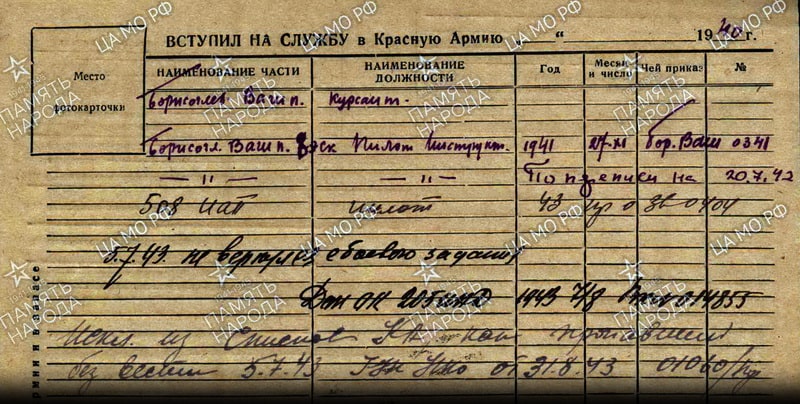 ВСТУПИЛ НА СЛУЖБУ в Красную Армию „ “ 1940 г.
Место фотокарточки
НАИМЕНОВАНИЕ ЧАСТИ
НАИМЕНОВАНИЕ ДОЛЖНОСТИ
Год
Месяц и число
Чей приказ
№
Борисоглеб ВАШ п. Курсант.
Борисогл. ВАШ п. эск Пилот Инструкт. 1941 27-XI бор. ВАШ 0341
— " — — " — По переписи на 20.7.42
508 иап пилот 43
5.7.43. не вернулся с боевого задания
1943 7/8 014855
Искл. из списков КА как пропавший
без вести 5.7.43 ГУК НКО от 31.8.43 01060/пр
ЦА МО РФ
ПАМЯТЬ НАРОДА